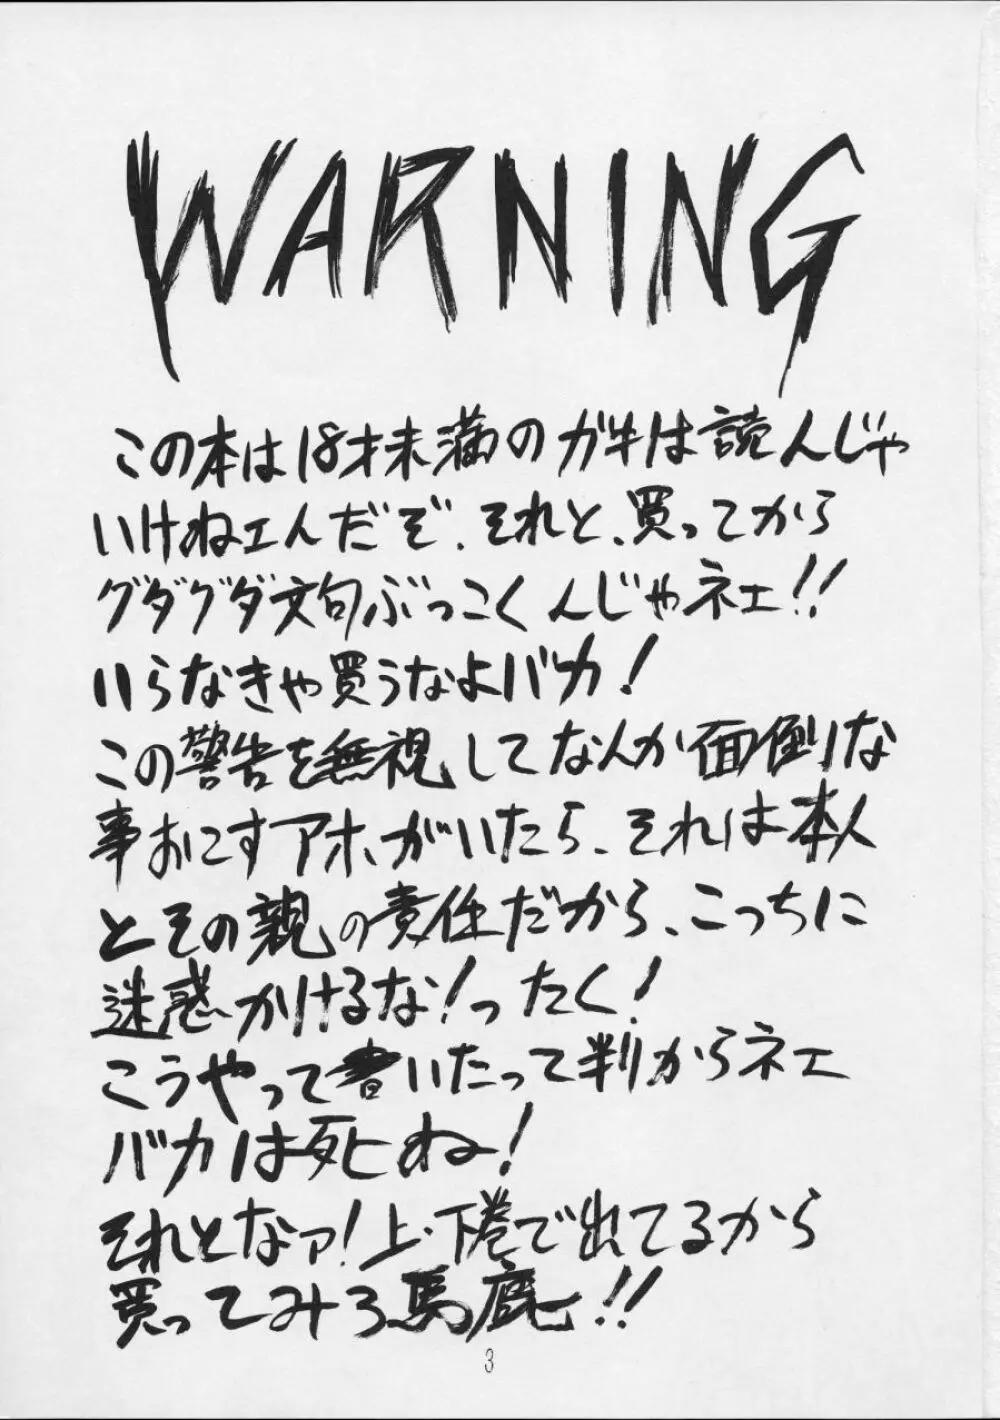 WARNING
この本は18才未満のガキは読んじゃ
いけねェんだぞ.それと、買ってから
グダグダ文句ぶっこくんじゃネェ!!
いらなきゃ買うなよバカ!
この警告を無視してなんか面倒な
事おこすアホがいたら、それは本人
とその親の責任だから、こっちに
迷惑かけるな!ったく!
こうやって書いたって判からネェ
バカは死ね!
それとなァ!上・下巻で出てるから
買ってみろ馬鹿!!
3